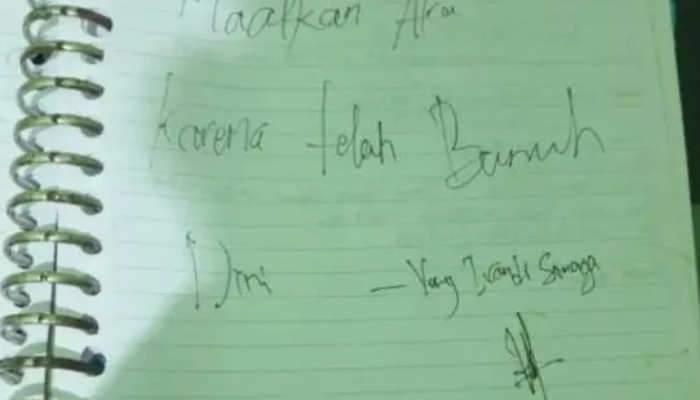 Maafkan Aku
Karena telah Bunuh
Diri – Yang Irandi Sanaga